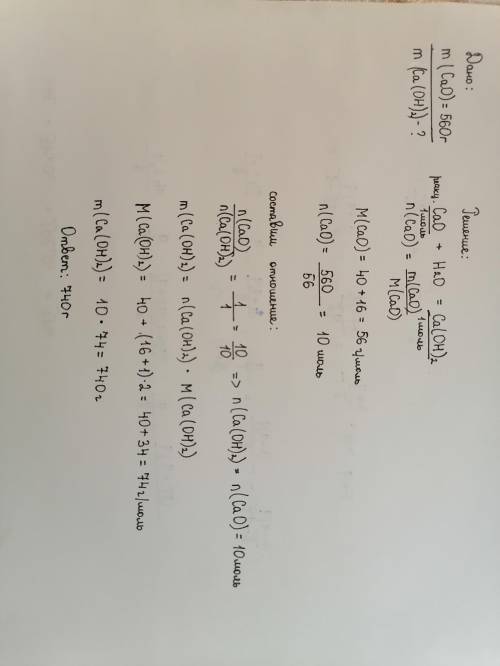 Дано:
m(CaO) = 560г
m(Ca(OH)₂) - ?
Решение:
реакц. CaO + H₂O = Ca(OH)₂
1моль 1моль
n(CaO) = m(CaO) / M(CaO)
M(CaO) = 40 + 16 = 56 г/моль
n(CaO) = 560 / 56 = 10 моль
составим отношение:
n(CaO) / n(Ca(OH)₂) = 1 / 1 = 10 / 10 => n(Ca(OH)₂) = n(CaO) = 10 моль
m(Ca(OH)₂) = n(Ca(OH)₂) · M(Ca(OH)₂)
M(Ca(OH)₂) = 40 + (16 + 1) · 2 = 40 + 34 = 74 г/моль
m(Ca(OH)₂) = 10 · 74 = 740 г
Ответ: 740г